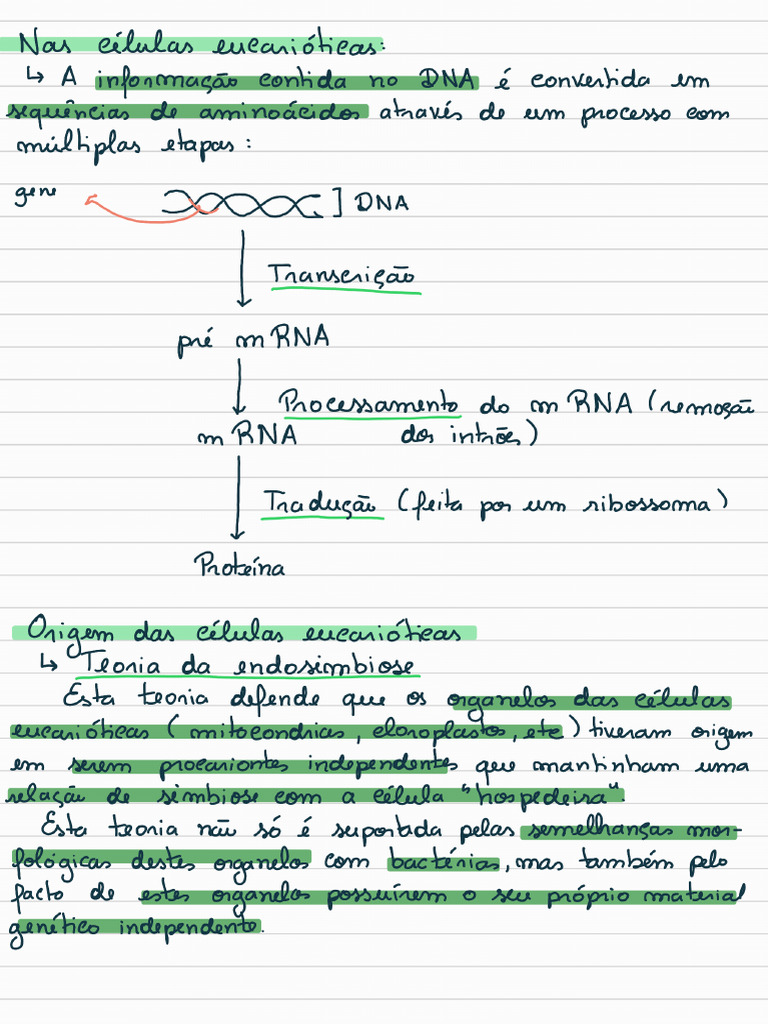 Nas células eucarióticas:
↳ A informação contida no DNA é convertida em
sequências de aminoácidos através de um processo com
múltiplas etapas:
gene
] DNA
Transcrição
pré mRNA
Processamento do mRNA (remoção
mRNA dos intrões)
Tradução (feita por um ribossoma)
Proteína
Origem das células eucarióticas
↳ Teoria da endosimbiose
Esta teoria defende que os organelos das células
eucarióticas (mitocondrias, cloroplastos, etc) tiveram origem
em serem procariontes independentes que mantinham uma
relação de simbiose com a célula "hospedeira".
Esta teoria não só é suportada pelas semelhanças mor-
fológicas destes organelos com bactérias, mas também pelo
facto de estes organelos possuírem o seu próprio material
genético independente.